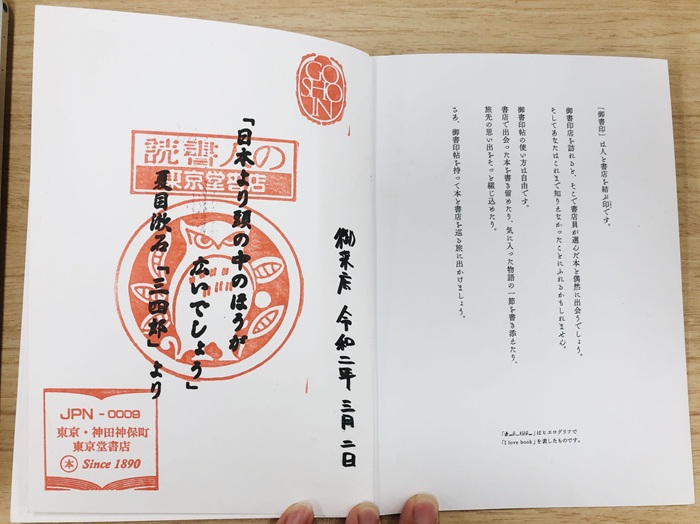 「『御書印』は人と書店を結ぶ印です。
御書印店を訪れると、そこで書店員が選んだ本と偶然に出会うでしょう。
そしてあなたはこれまで知りえなかったことにふれるかもしれません。
御書印帖の使い方は自由です。
書店で出会った本を書き留めたり、気に入った物語の一節を書き添えたり、
旅先の思い出をそっと綴じ込めたり。
さあ、御書印帖を持って本と書店を巡る旅に出かけましょう。
はヒエログリフで
「I love book」を表したものです。
GO
SHO
IN
読書人の
東京堂書店
「日本より頭の中のほうが
広いでしょう」
夏目漱石「三四郎」より
御来店 令和二年 三月 二日
JPN - 0009
東京・神田神保町
東京堂書店
本 Since 1890